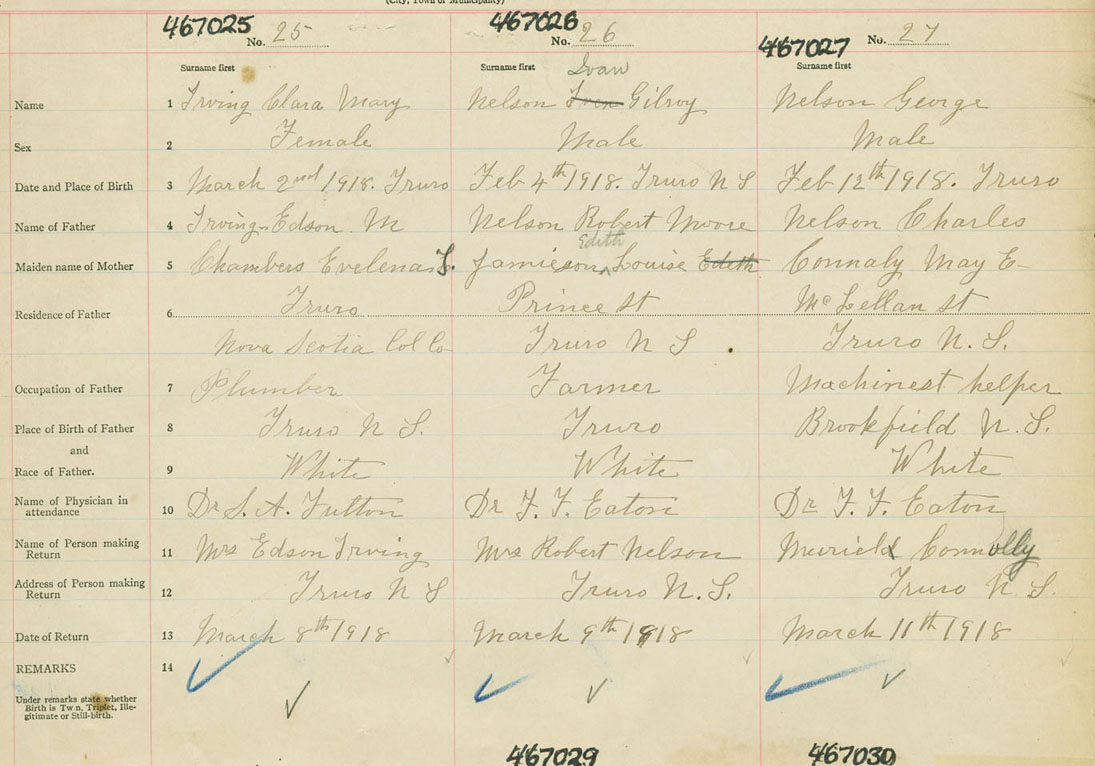 (City, Town or Municipality)
467025 No. 25 467026 No. 26 467027 No. 27
Surname first Surname first Ivan Surname first
Name 1 Irving Clara Mary Nelson Iven Gilroy Nelson George
Sex 2 Female Male Male
Date and Place of Birth 3 March 2nd 1918. Truro Feb 4th 1918. Truro N S Feb 12th 1918. Truro
Name of Father 4 Irving Edson M Nelson Robert Moore Nelson Charles
Edith
Maiden name of Mother 5 Chambers Evelena S. Jamieson Louise Edeth Connaly May E
Residence of Father 6 Truro Prince St McLellan st
Nova Scotia Col Co Truro N S Truro N. S.
Occupation of Father 7 Plumber Farmer Machinest helper
Place of Birth of Father 8 Truro N S. Truro Brookfield N. S.
and
Race of Father. 9 White White White
Name of Physician in
attendance 10 Dr S. A. Fulton Dr F. F. Eaton Dr F. F. Eaton
Name of Person making
Return 11 Mrs Edson Irving Mrs Robert Nelson Muriel Connolly
Address of Person making
Return 12 Truro N S Truro N. S. Truro N. S.
Date of Return 13 March 8th 1918 March 9th 1918 March 11th 1918
REMARKS 14
Under remarks state whether
Birth is Twin, Triplet, Ille-
gitimate or Still-birth.
467029 467030